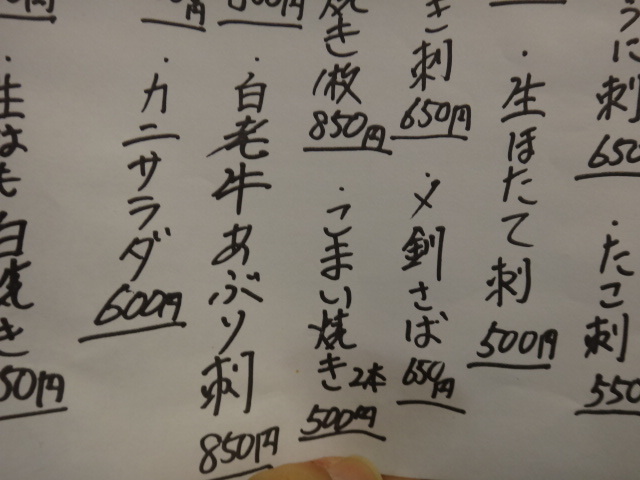 うに刺
650
・たこ刺
550
・生ほたて刺
500円
き刺
650円
・〆釧さば
650円
焼き1枚
850円
・こまい焼き2本
500円
500円
・白老牛あぶり刺
850円
円
・カニサラダ
600円
円
・生はも白焼き
50円